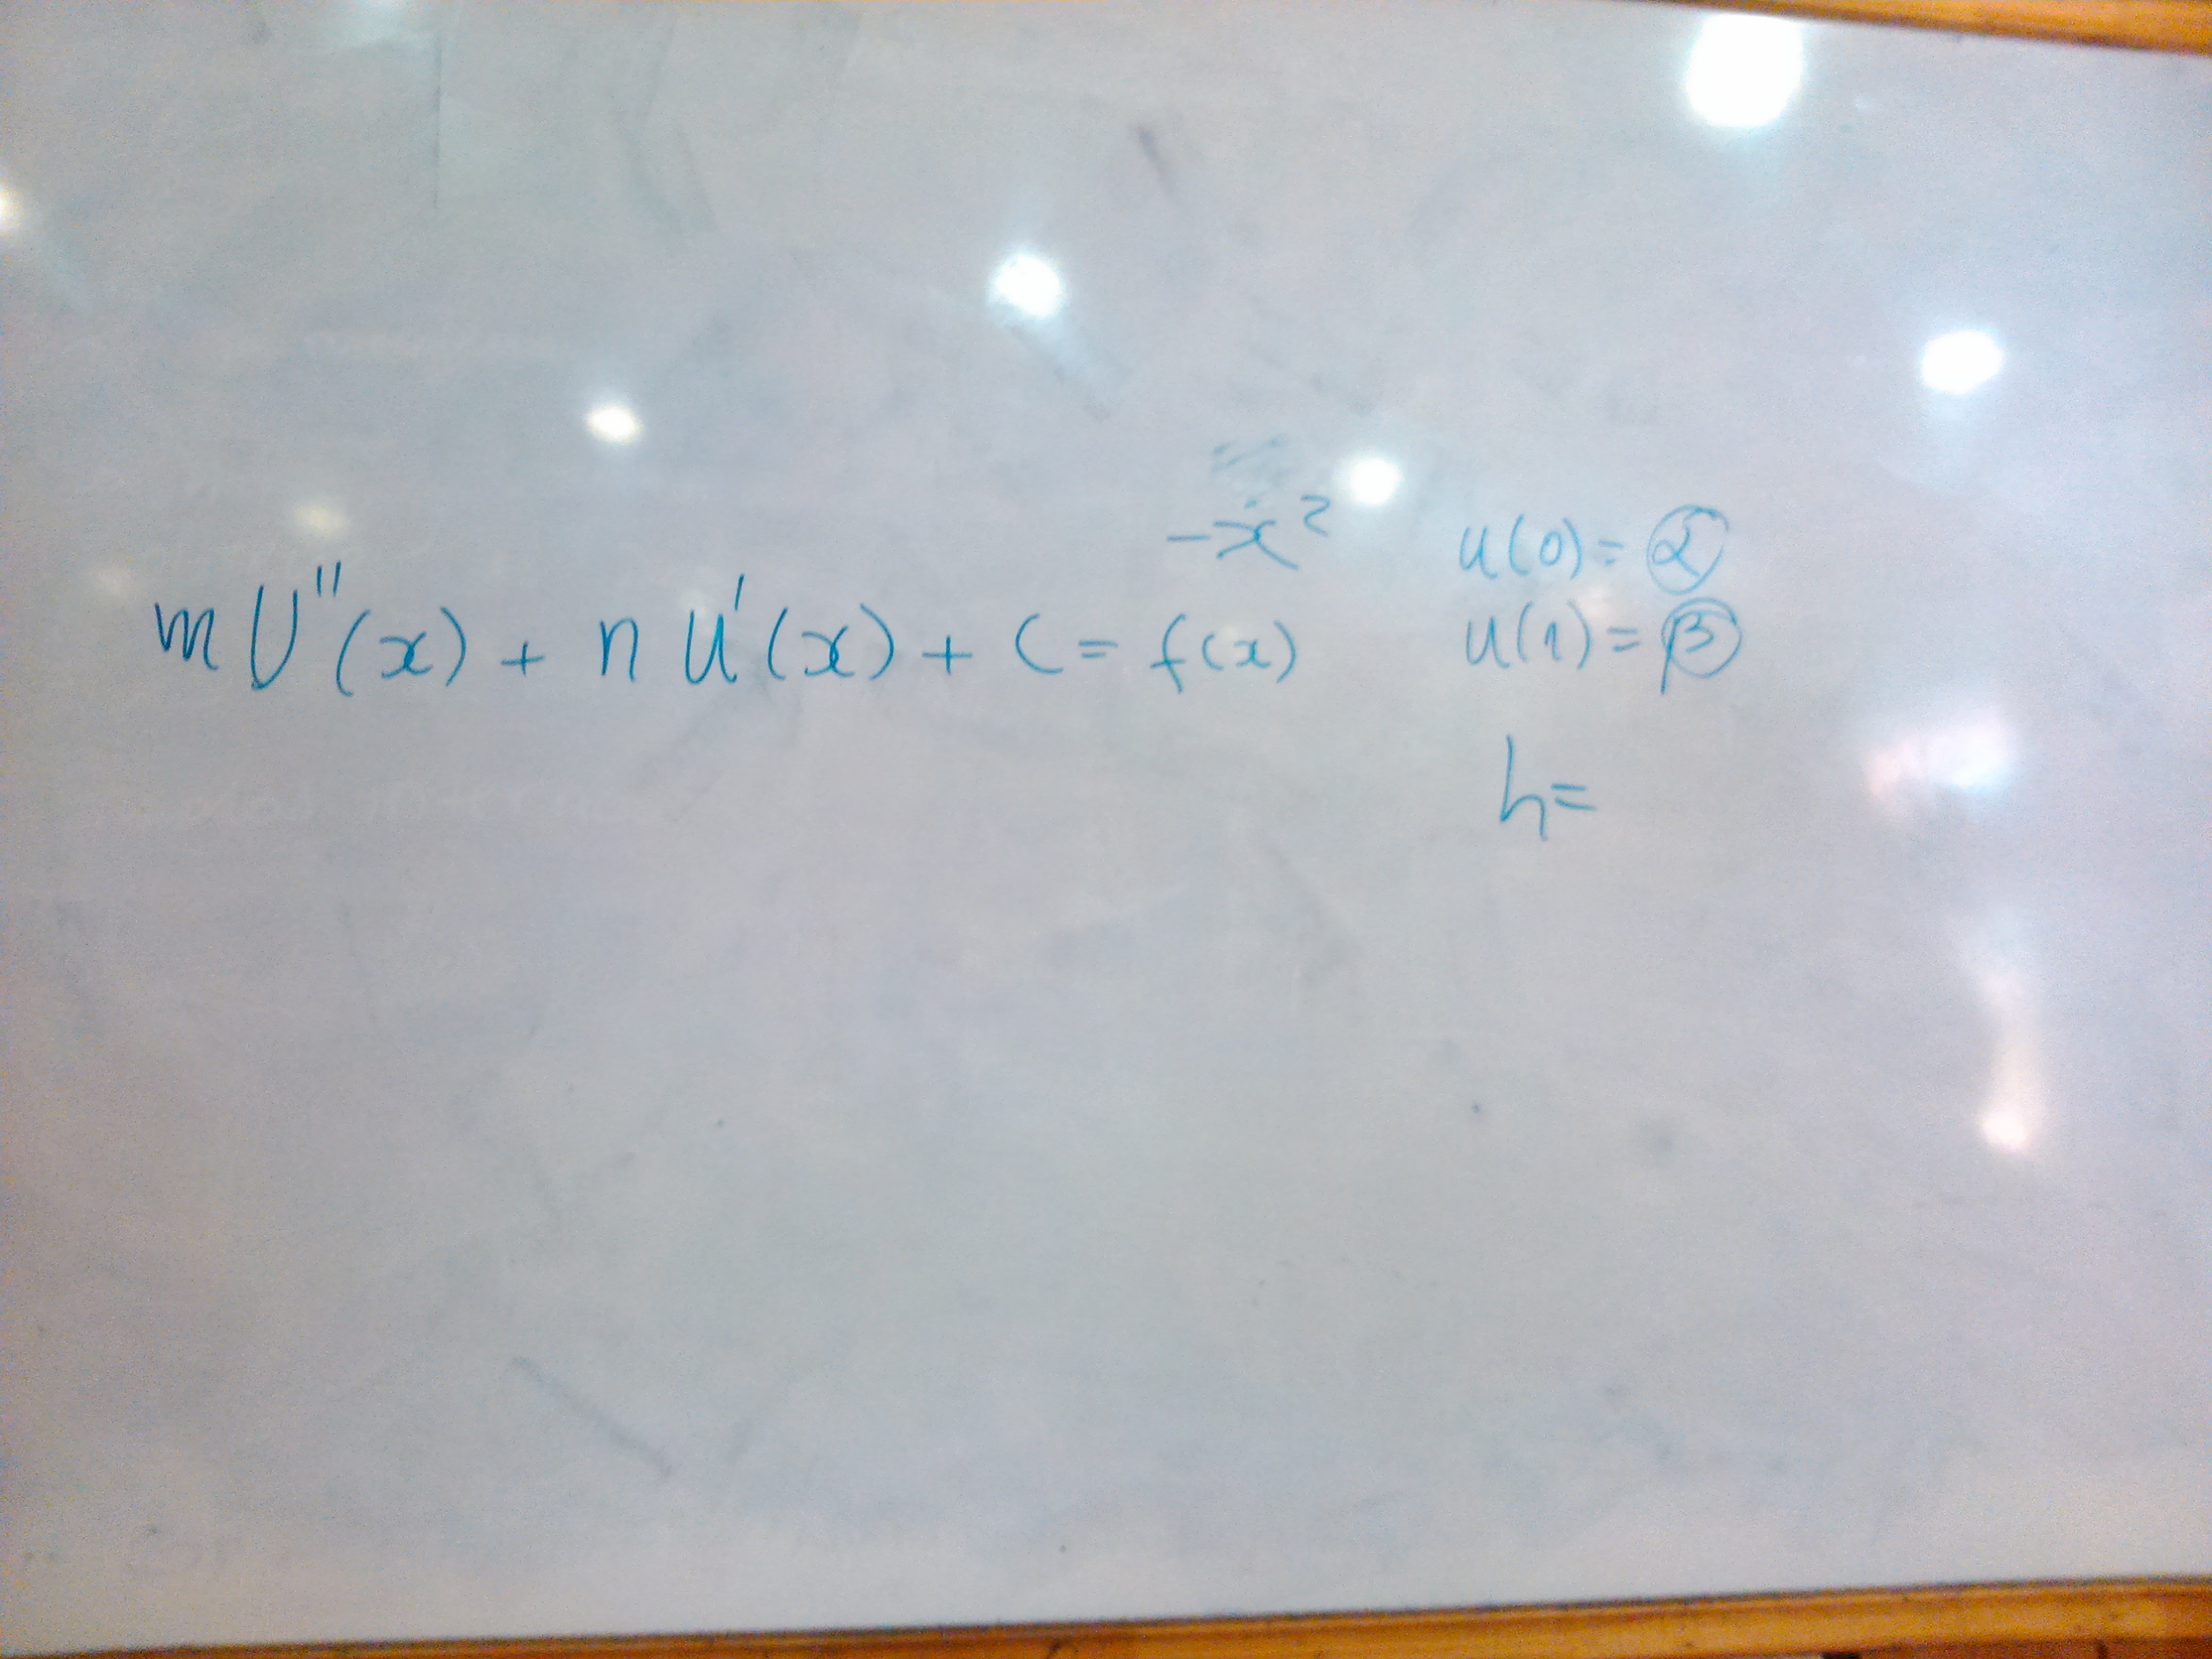 -x²
mU''(x) + n u'(x) + C = f(x)
u(0) = α
u(1) = β
h=